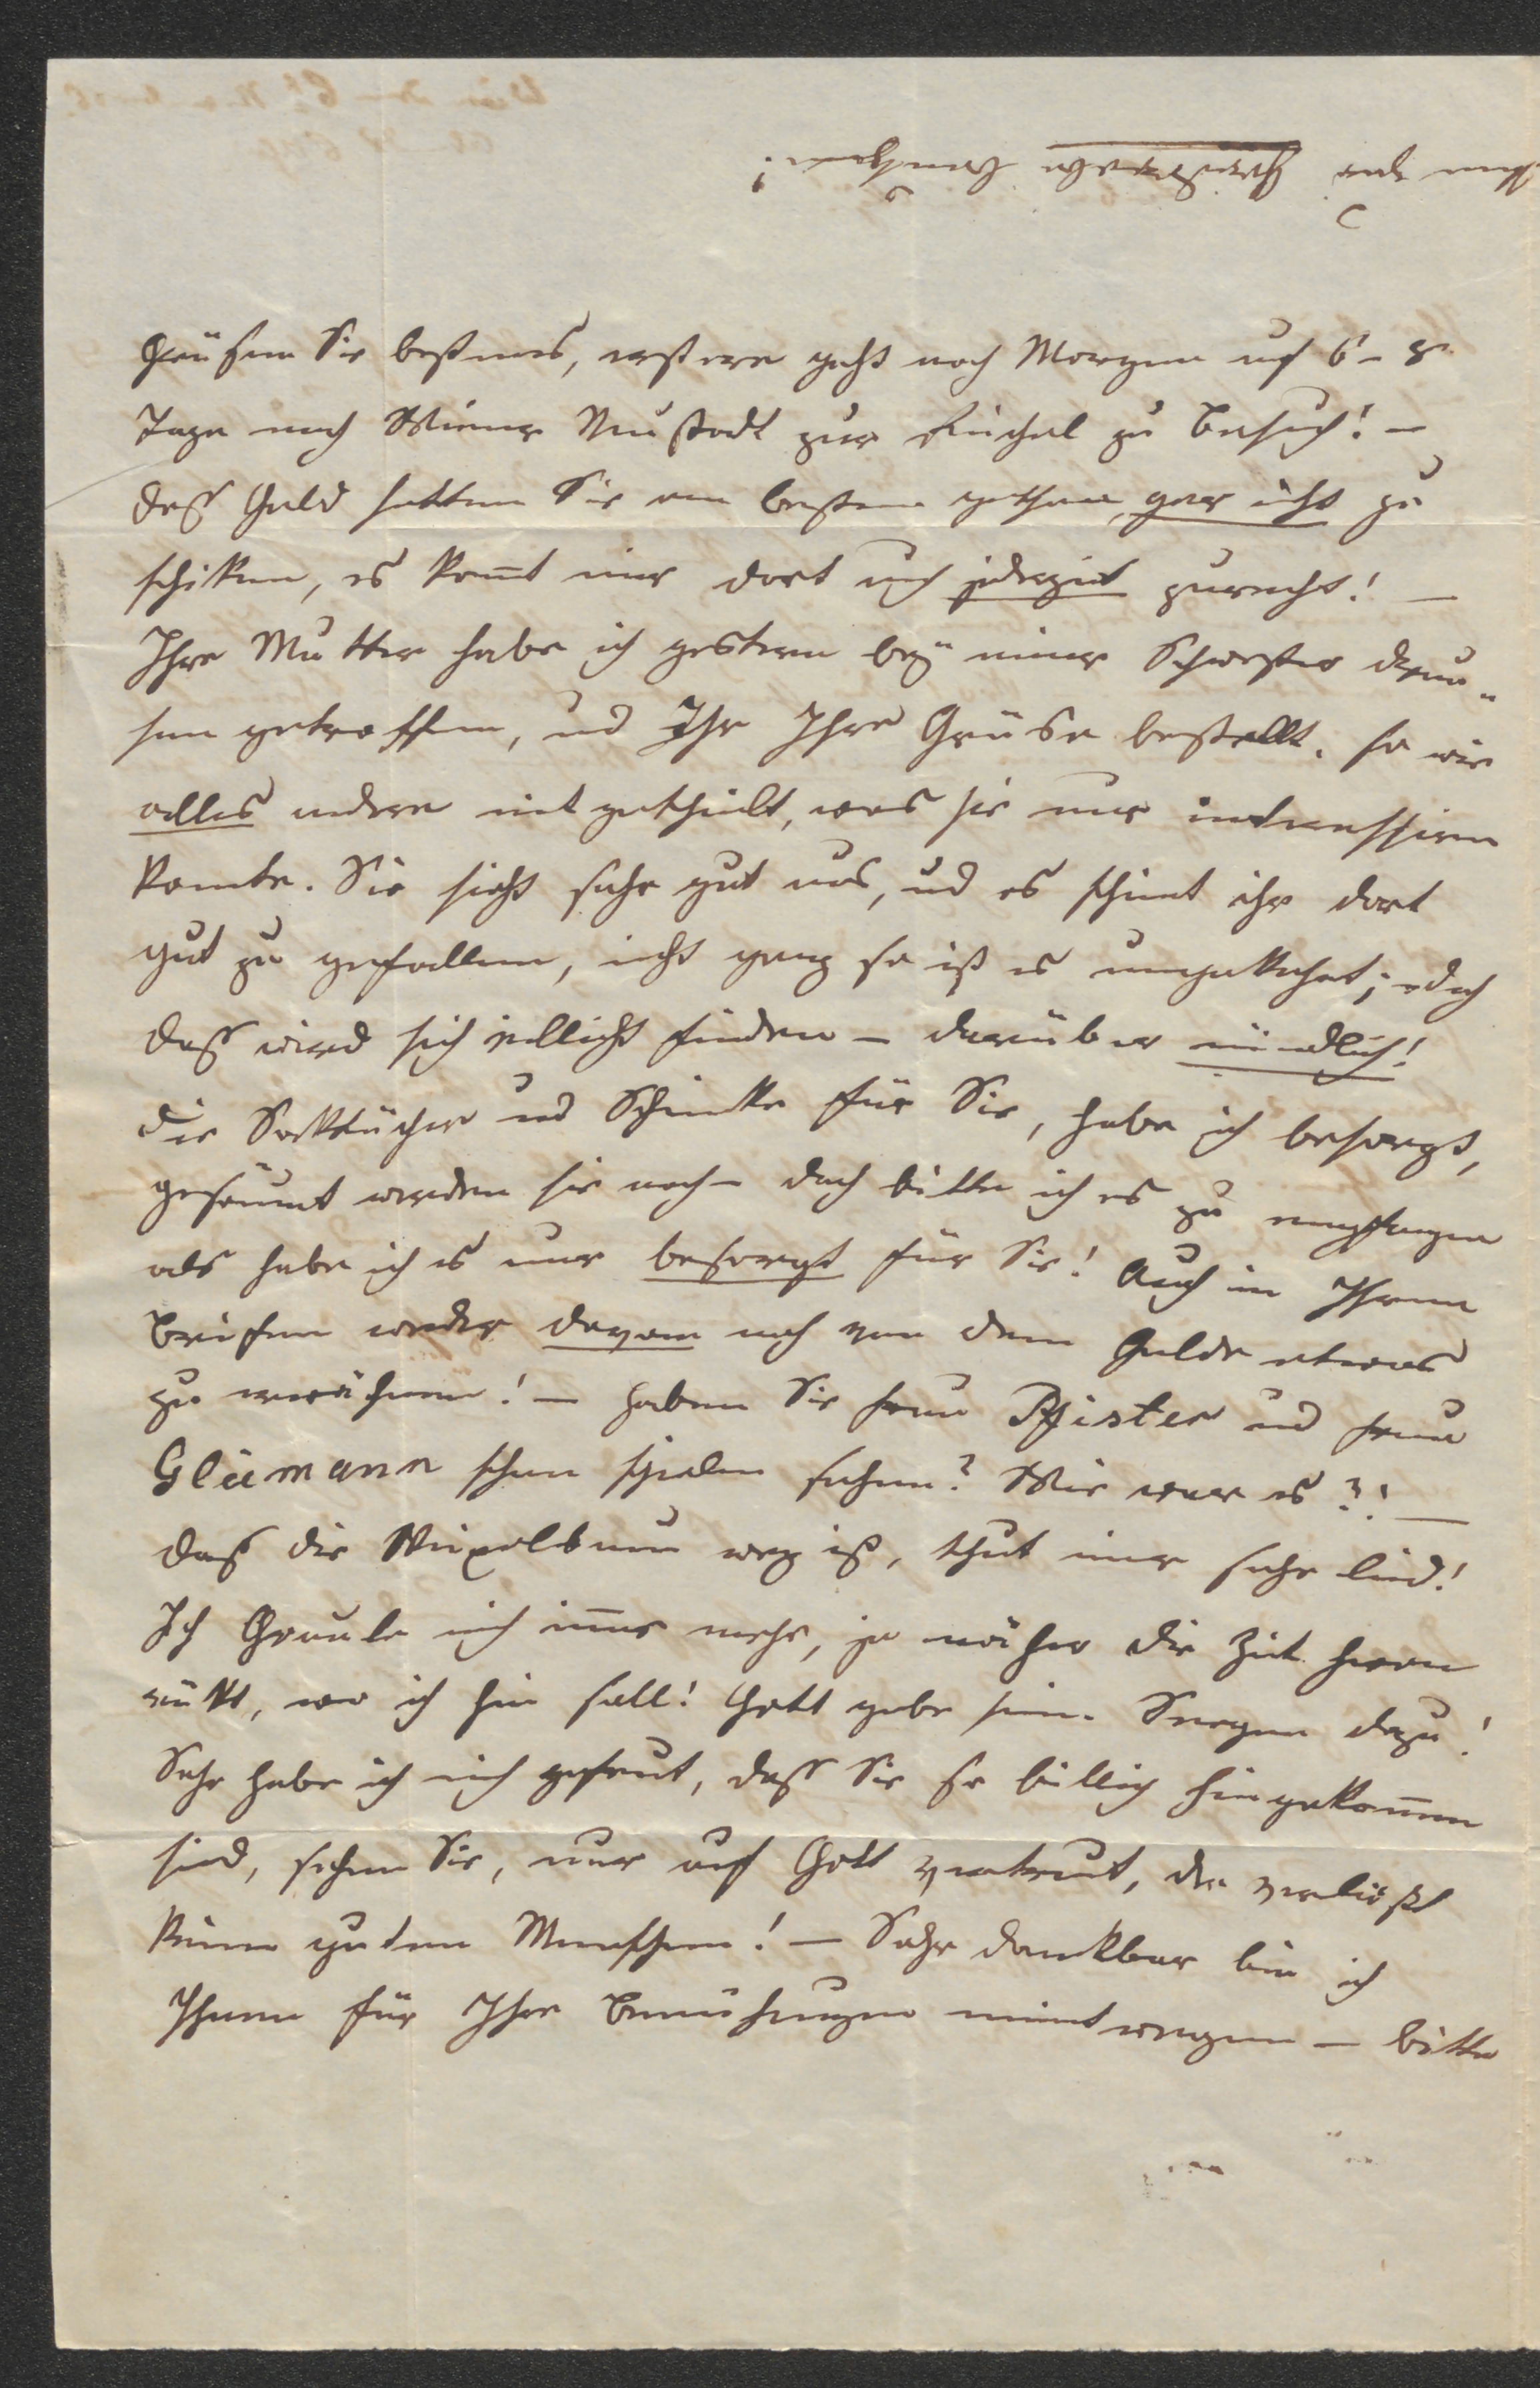 grüßen Sie bestens, erstere geht noch Morgen auf 6 - 8
Tage nach Wiener Neustadt zur Fuichel zu Besuch! –
daß Geld hatten Sie am besten gethan, gar nicht zu
schiken, es komt mir dort auch jederzeit zurecht! –
Ihre Mutter habe ich gestern bey meiner Schwester drau-
sen getroffen, und Ihr Ihre Grüße bestellt. so wie
alles andere mit getheilt, was sie nur interessiren
konnte. Sie sieht sehr gut aus, und es scheint ihr dort
gut zu gefallen, nicht ganz so ist es umgekehrt; doch
daß wird sich vielleicht finden – darüber mündlich!
die Saktücher und Schminke für Sie, habe ich besorgt,
gesäumt werden sie noch – doch bitte ich es zu empfangen
als habe ich es nur besorgt für Sie! Auch in Ihren
Briefen weder davon noch von dem Gelde etwas
zu erwähnen! – haben Sie Frau Pfister und Frau
Glümann schon spielen sehen? Wie war es?! –
daß die weg ist, thut mir sehr leid!
Ich Graule mich imer mehr, je näher die Zeit heran
rükt, wo ich hin soll! Gott gebe sein. Seegen dazu!
Sehr habe ich mich gefreut, daß Sie so billig hingekomen
sind, sehen Sie, nur auf Gott vertraut, der verläßt
keinen guten Menschen! – Sehr dankbar bin ich
Ihnen für Ihre Bemühungen meintwegen – bitte